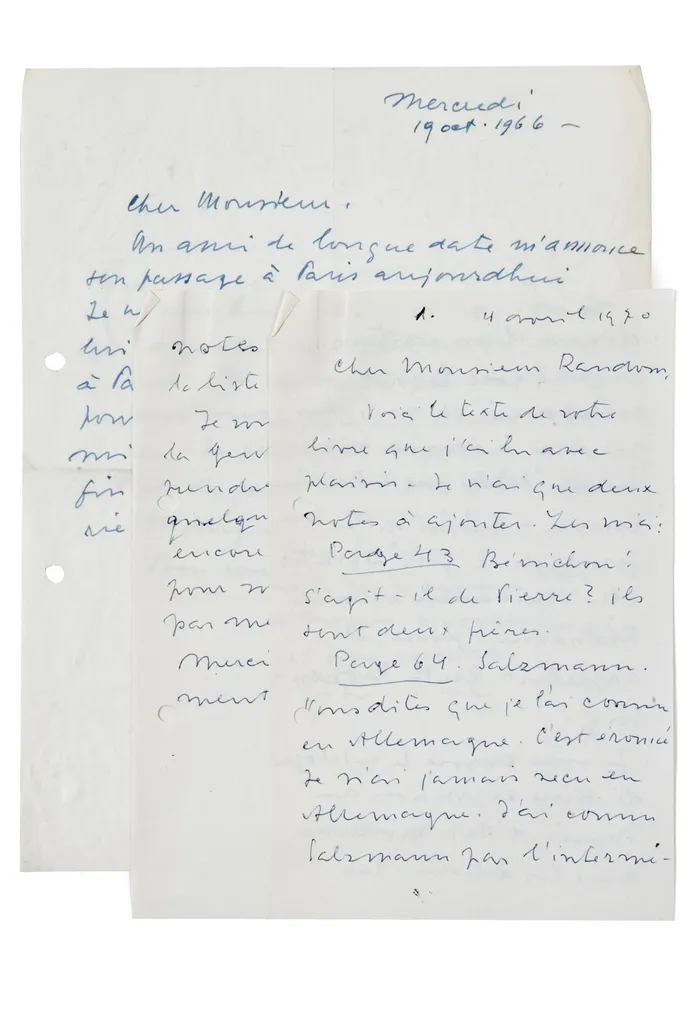 Mercredi
19 oct. 1966 -
Cher Monsieur.
Un ami de longue date m'annonce
son passage à Paris aujourdhui
Je n
lui
à Pa
pour
mi
fin
vie
notes
la liste
Je vou
la gen
rendre
quelqu
encore
pour vo
par me
Merci
ment
1. 4 avril 1970
Cher Monsieur Random,
Voici le texte de votre
livre que j'ai lu avec
plaisir - Je n'ai que deux
notes à ajouter. Les voici:
Page 43 Bénichou!
S'agit-il de Pierre? ils
sont deux frères.
Page 64. Salzmann.
Vous dites que je l'ai connu
en Allemagne. C'est éronné
Je n'ai jamais vecu en
Allemagne. J'ai connu
Salzmann par l'intermé-